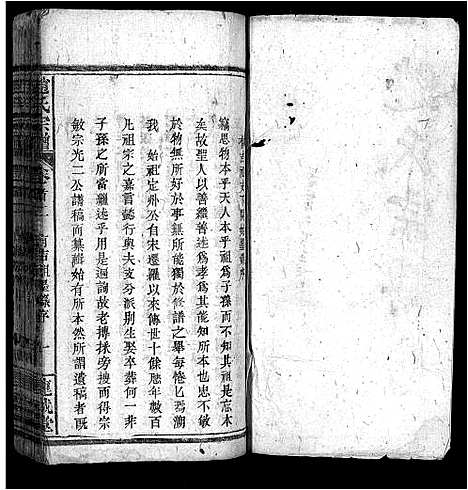 竊思物本乎天人本乎祖為子孫而不知其祖是忘木
矣故聖人以善繼善述為孝為其能不忘本也忠不敏
於物無所好於事無所能獨於修譜之舉每惓匕焉溯
我 始祖定州公自宋遷羅以來傳世一十餘歷年數百
凡祖宗之嘉言懿行與夫支分派別生娶卒葬何一非
子孫之所當繼述乎用是遍詢故老搏採旁搜而得宗
敏宗光二公譜稿而纂緝始有所本然所謂遺稿者既
氏宗譜
卷首
序
一